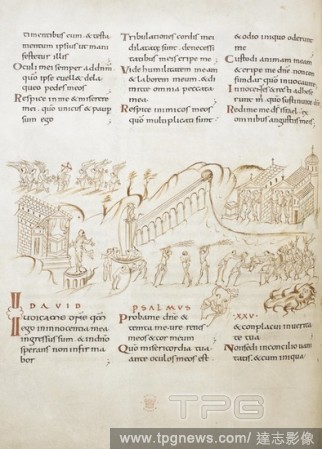 timentibus eum & testa
mentum ipsius ut mani
festetur illis
Oculi mei semper ad dnm
quo ipse euell& dela
queo pedes meos
Respice in me & miserere
mei quia unicus & paup
sum ego
Tribulationes cordis mei
dilatatę sunt denecessi
tatibus meis eripe me
Vide humilitatem meam
& laborem meum & di
mitte omnia peccata
mea
Respice inimicos meos
quo multiplicati sunt
& odio iniquo oderunt
me
Custodi animam meam
& eripe me dne non con
fundar quo inuocaui te
Innocentes & recti adhese
runt m quo sustinui te
Redime me ds israel ex
omnibus angustiis meis
DAVID
PSALMUS
XXV
Iudica me dne quo
ego in innocentia mea
ingressus sum & in dno
sperans non infirma
bor
Proba me dne &
tempta me ure renes
meos & cor meum
Quo misericordia tua
ante oculos meos est
& conplacui in uerita
te tua
Non sedi in concilio uani
tatis & cum iniqua
TPG
www.tpgnews.com / 達志影像